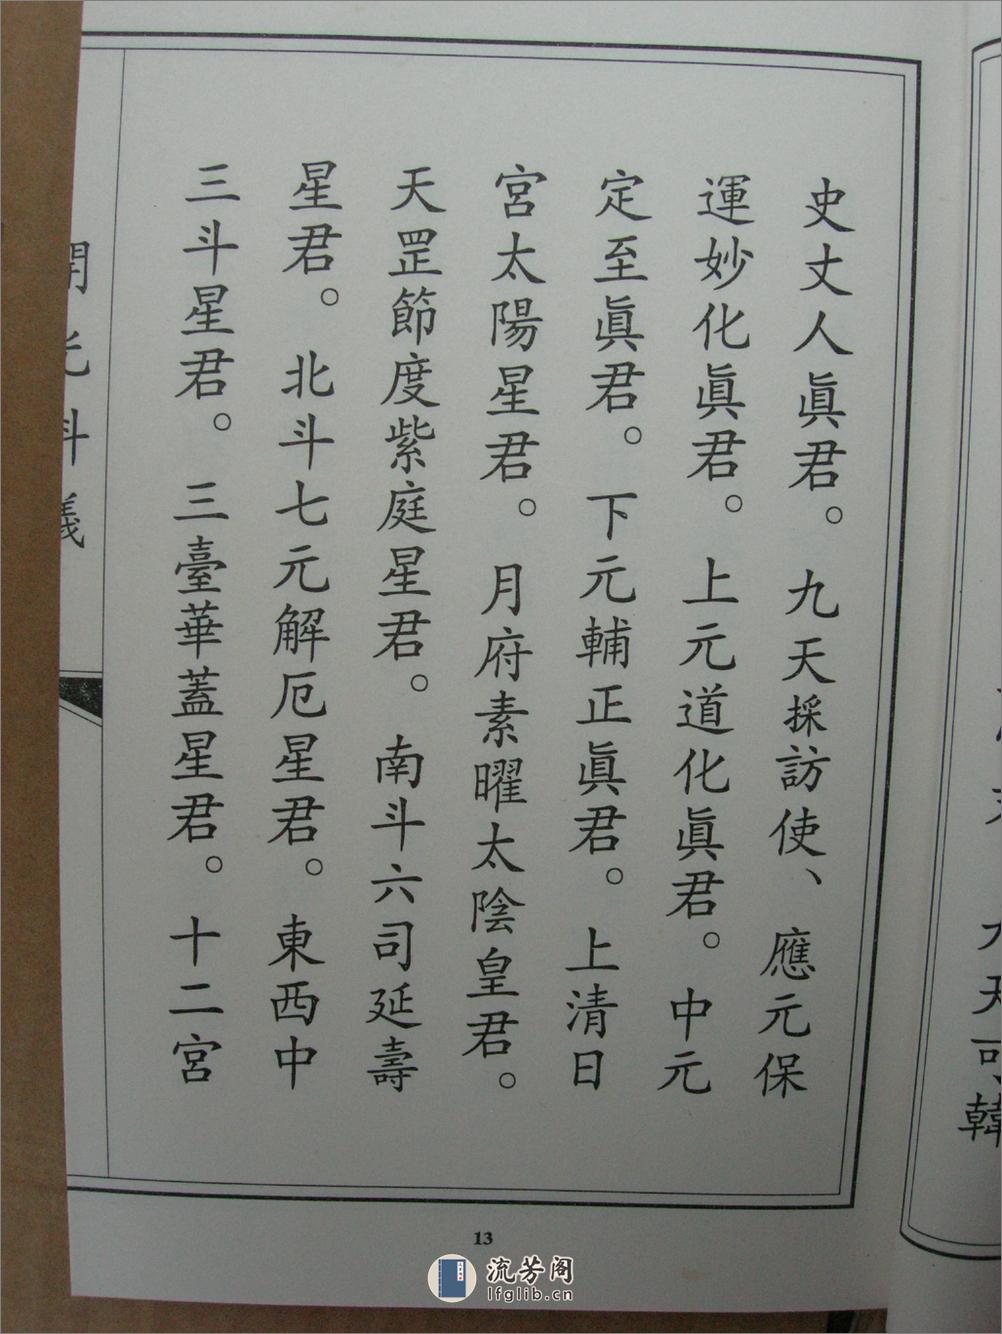 史丈人眞君。九天採訪使、應元保
運妙化眞君。上元道化眞君。中元
定至眞君。下元輔正眞君。上清日
宮太陽星君。月府素曜太陰皇君。
天罡節度紫庭星君。南斗六司延壽
星君。北斗七元解厄星君。東西中
三斗星君。三臺華蓋星君。十二宮
開光科儀
13
流芳阁
lfglib.cn